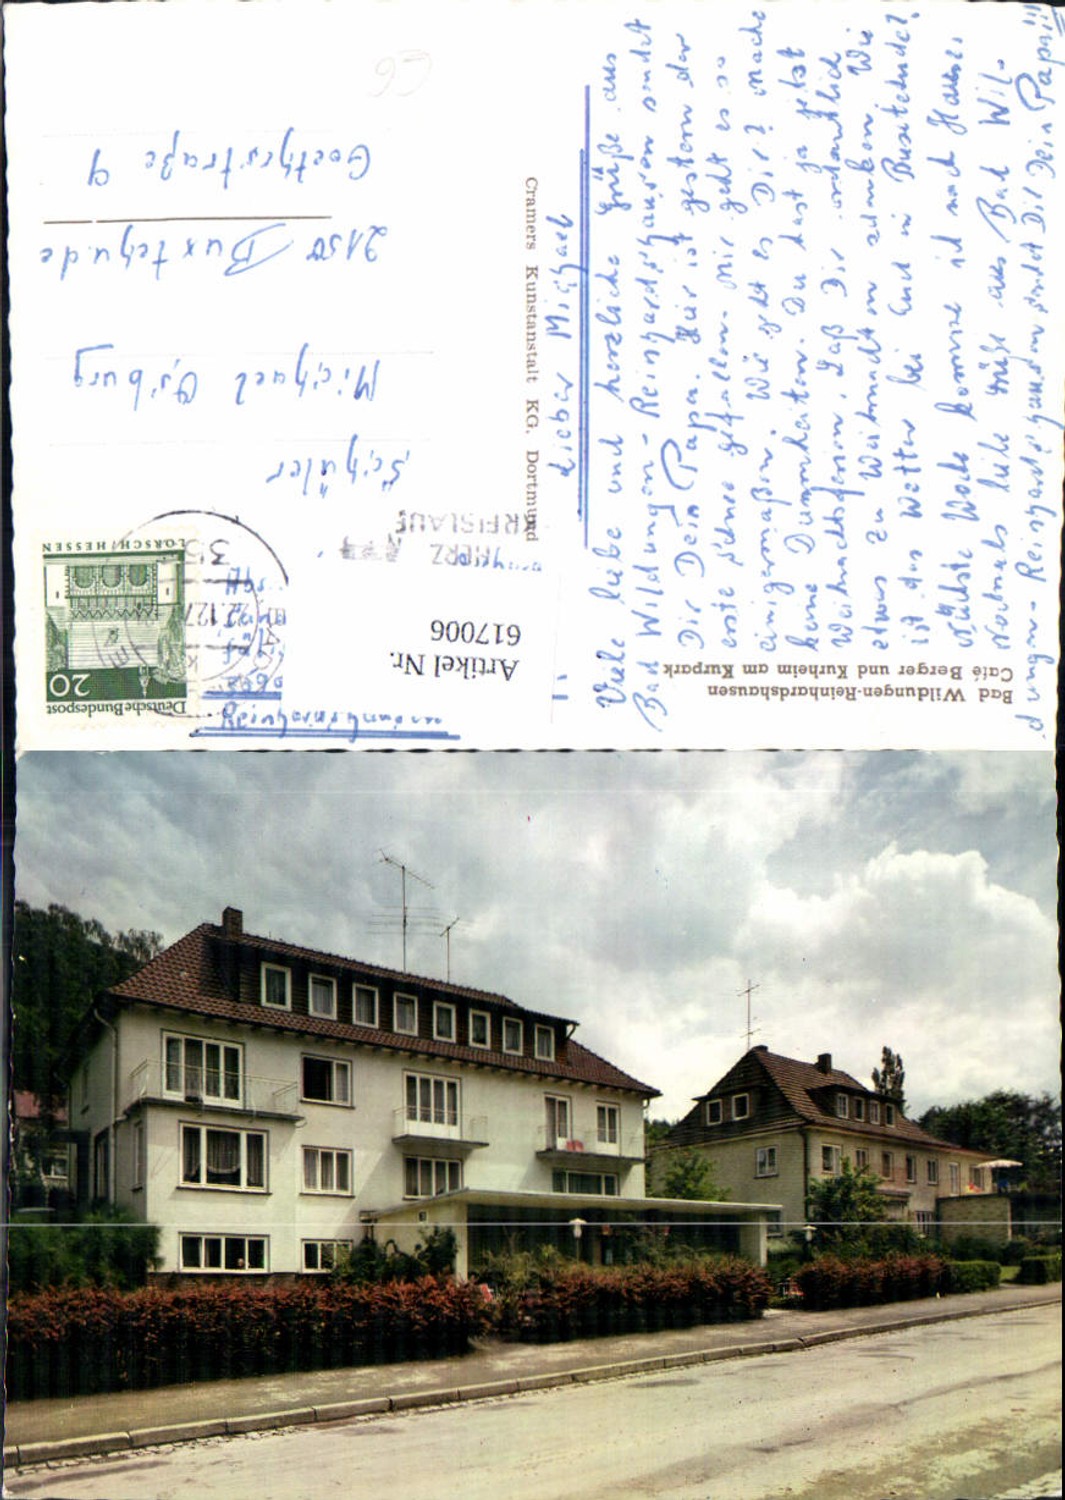 Bad Wildungen-Reinhardshausen
Café Berger und Kurheim am Kurpark
Artikel Nr.
617006
Cramers Kunstanstalt KG. Dortmund
Deutsche Bundespost
20
LORSCH/HESSEN
HERZ
Schüler
Michael
2150 Buxtehude
Goethestraße 9
Lieber Michael
Viele liebe und herzliche Grüße aus
Bad Wildungen-Reinhardshausen sendet
Dir Dein Papa. Hier ist gestern der
erste Schnee gefallen. Mir geht es so
einigermaßen. Wie geht es Dir? Mache
keine Dummheiten. Du hast ja jetzt
Weihnachtsferien. Laß Dir ordentlich
etwas zu Weihnachten schenken. Wie
ist das Wetter bei Euch in Buxtehude?
Nächste Woche komme ich nach Hause.
Nochmals liebe Grüße aus Bad Wil-
dungen-Reinhardshausen sendet Dir Dein Papa!!!